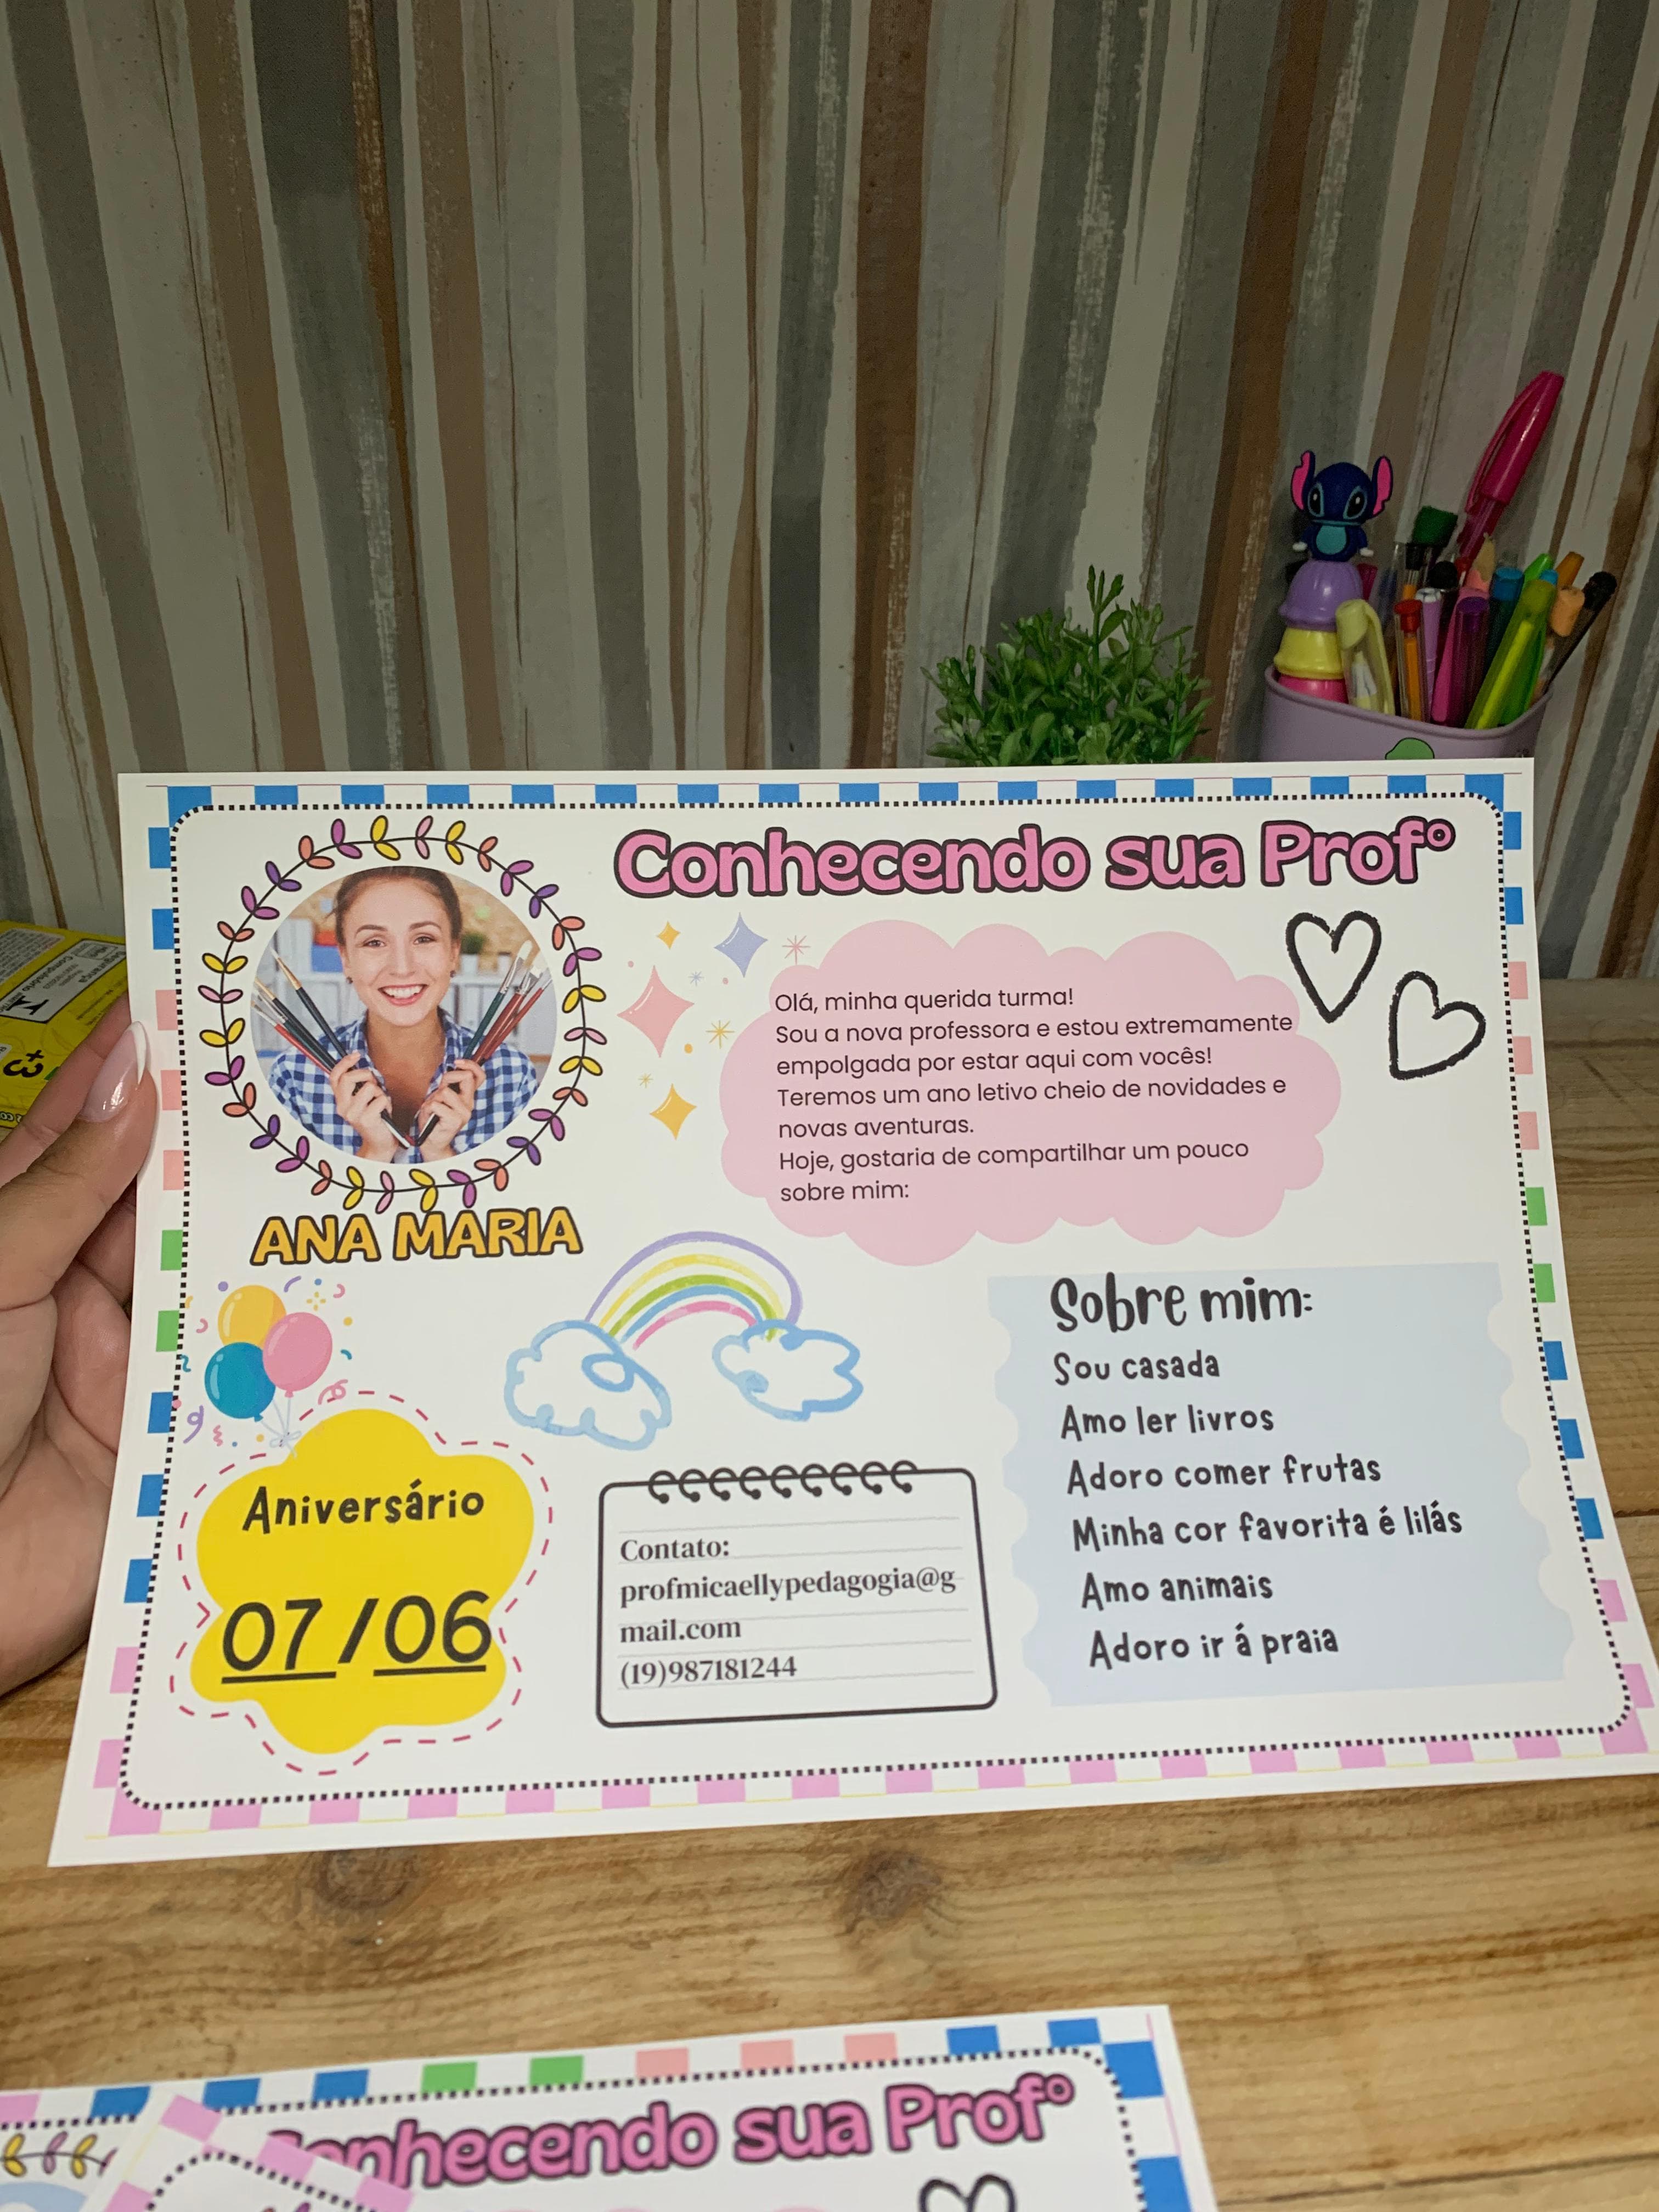 Conhecendo sua Profº
Olá, minha querida turma!
Sou a nova professora e estou extremamente
empolgada por estar aqui com vocês!
Teremos um ano letivo cheio de novidades e
novas aventuras.
Hoje, gostaria de compartilhar um pouco
sobre mim:
ANA MARIA
Aniversário
07/06
Contato:
profmicaellypedagogia@g
mail.com
(19)987181244
Sobre mim:
Sou casada
Amo ler livros
Adoro comer frutas
Minha cor favorita é lilás
Amo animais
Adoro ir á praia
3+
Conhecendo sua Profº